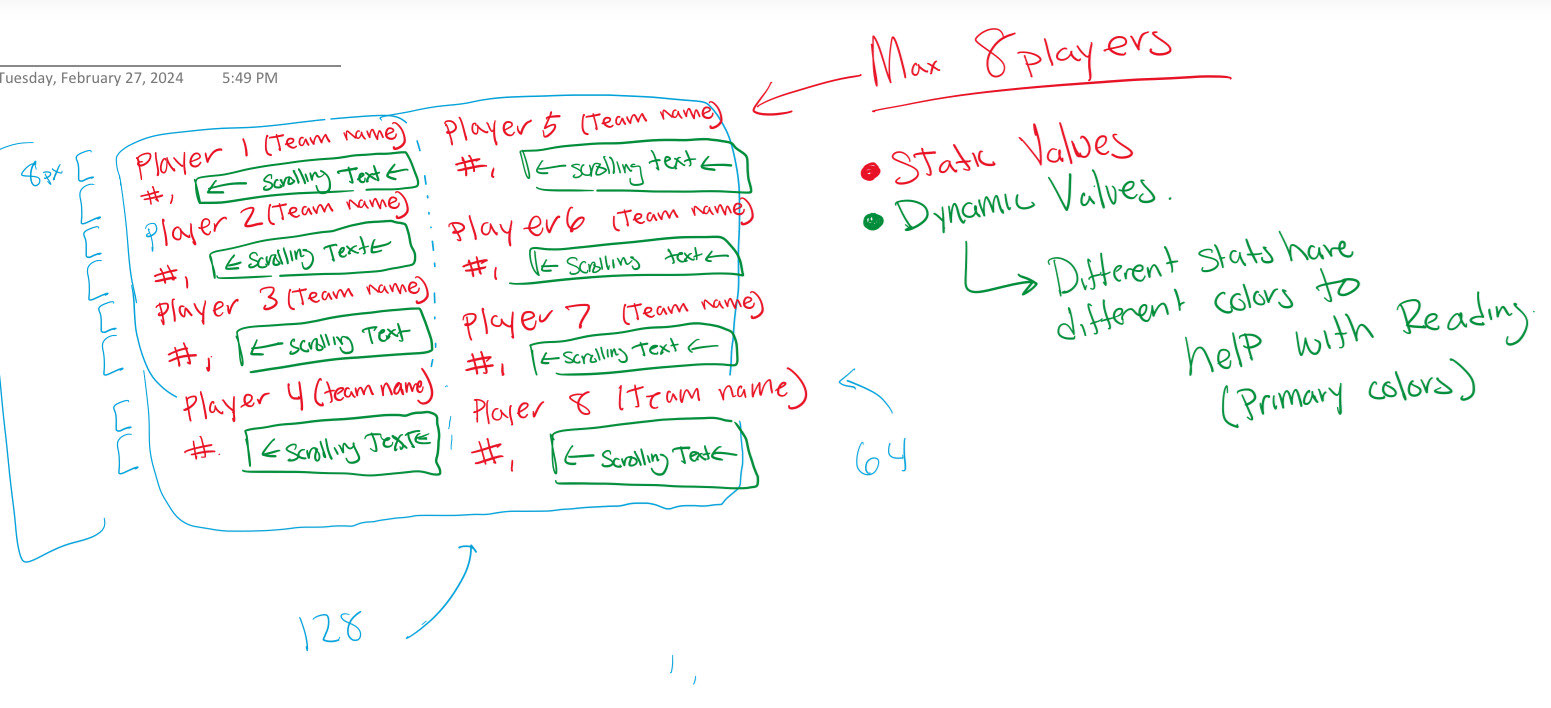 Tuesday, February 27, 2024 5:49 PM
Max 8 players
8px
Player 1 (Team name)
#, ← Scrolling Text ←
Player 2 (Team name)
#, ← Scrolling Text ←
Player 3 (Team name)
#, ← Scrolling Text
Player 4 (team name)
#. ← Scrolling Text ←
Player 5 (Team name)
#, ← scrolling text ←
Player 6 (Team name)
#, ← Scrolling text ←
Player 7 (Team name)
#, ← Scrolling Text ←
Player 8 (Team name)
#, ← Scrolling Text ←
• Static Values
• Dynamic Values.
→ Different stats have
different colors to
help with Reading.
(Primary colors)
64
128